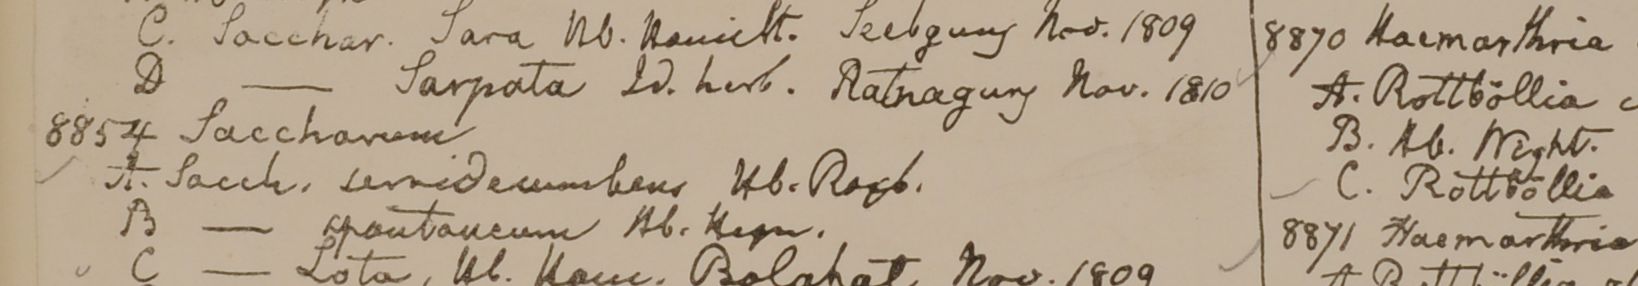 C. Sacchar. Sara Hb. Hamilt. Seebgunj Nov. 1809
D — Sarpata Id. herb. Ratnagunj Nov. 1810
8854 Saccharum
A. Sacch. semidecumbens Hb. Roxb.
B — spontaneum Hb. Heyn.
C — Lota, Hb. Ham. Nov. 1809
8870 Haemarthria
A. Rottböllia c
B. Hb. Wight.
C. Rottböllia
8871 Haemarthria
A Rottböllia